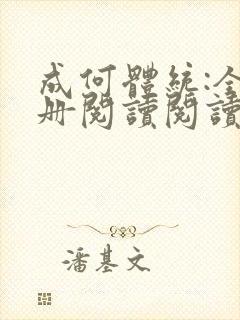 成何體統:全
冊閱讀閱讀
潘基文